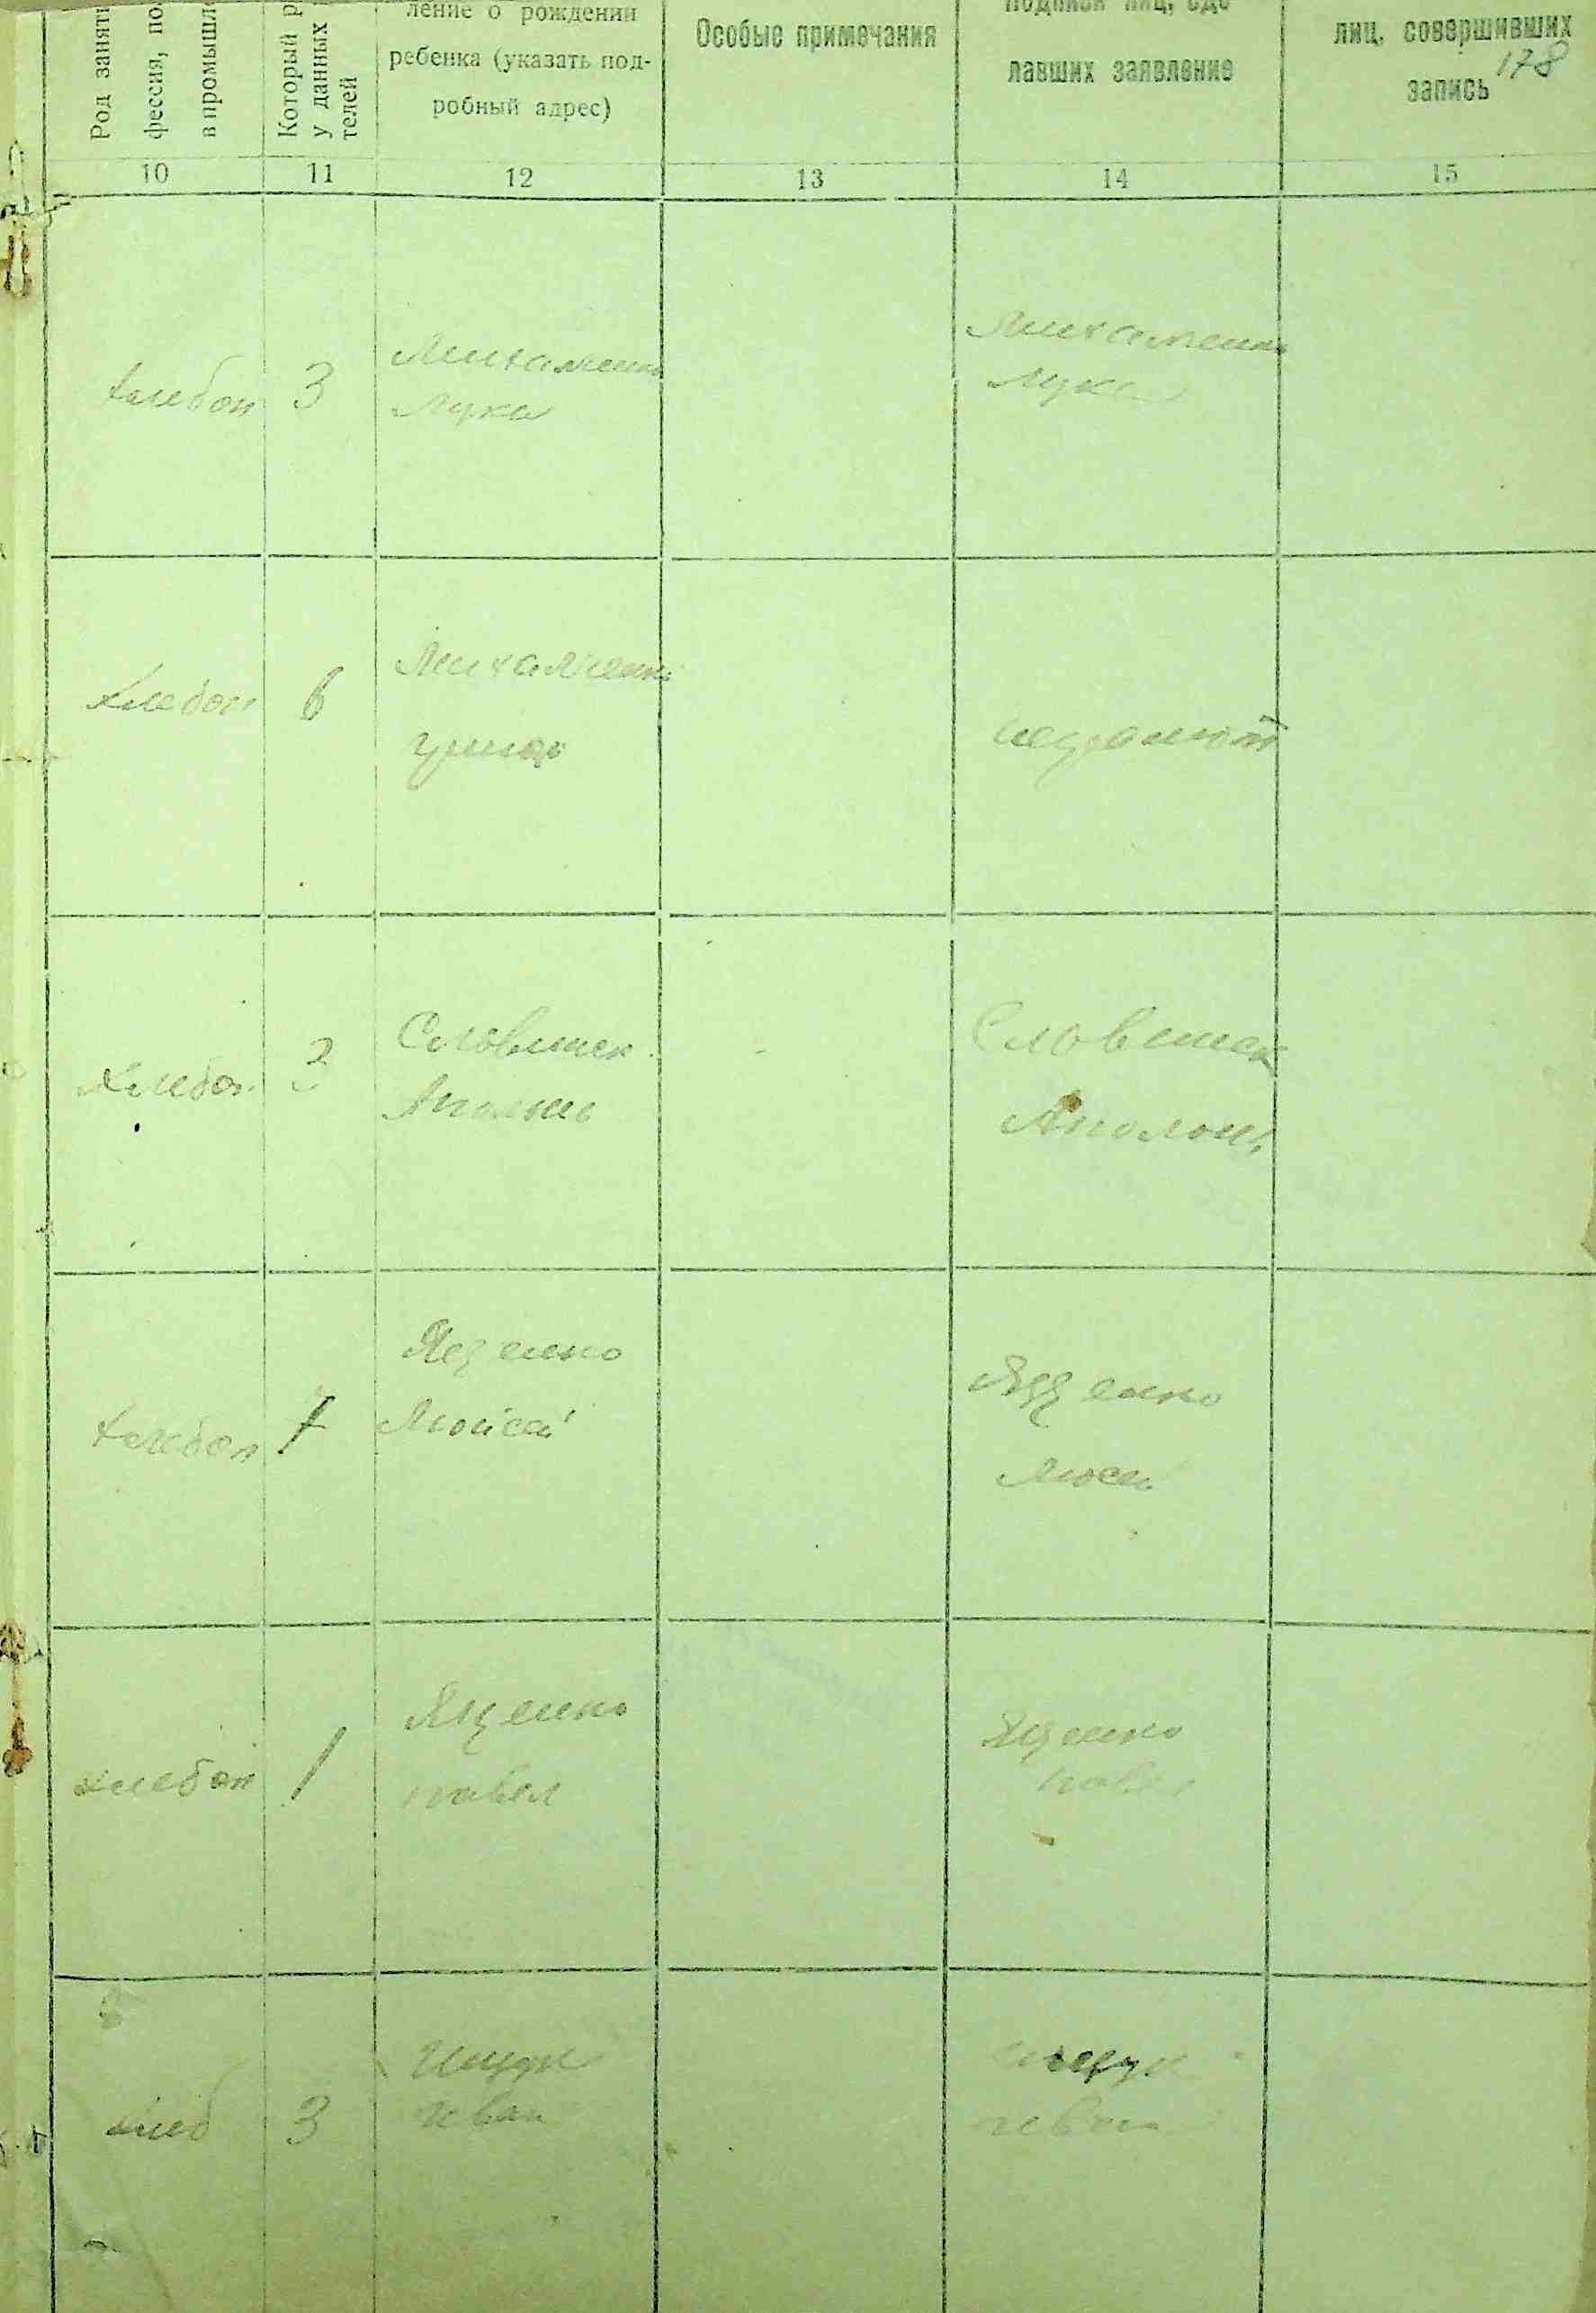 Род заняти
фессия, по
в промышл
Который р
у данных
телей
ление о рождении
ребенка (указать под-
робный адрес)
Особые примечания
Подписи лиц, сде-
лавших заявление
лиц, совершивших
запись
178
10 11 12 13 14 15
хлебоп 3
Михаленко
Лука
Михаленко
Лука
хлебоп 6
Михаленко
неграмот
хлебоп 3
Словинск
Аполон
Словинск
Аполон
хлебоп 7
Яценко
Мойсей
Яценко
Мосей
хлебоп 1
Яценко
павел
Яценко
павел
хлеб 3
Ищук
Иван
Ищук
Иван